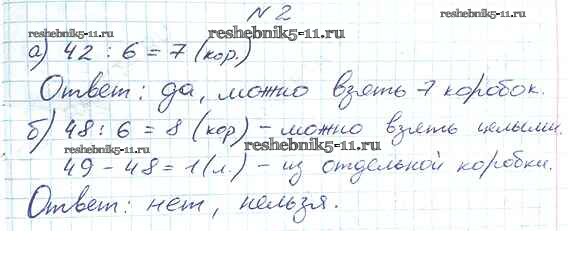 № 2
reshebnik5-11.ru reshebnik5-11.ru
а) 42 : 6 = 7 (кор.)
reshebnik5-11.ru
Ответ: да, можно взять 7 коробок.
reshebnik5-11.ru
б) 48 : 6 = 8 (кор) – можно взять целыми.
reshebnik5-11.ru reshebnik5-11.ru
49 – 48 = 1 (л.) – из отдельной коробки.
reshebnik5-11.ru
Ответ: нет, нельзя.